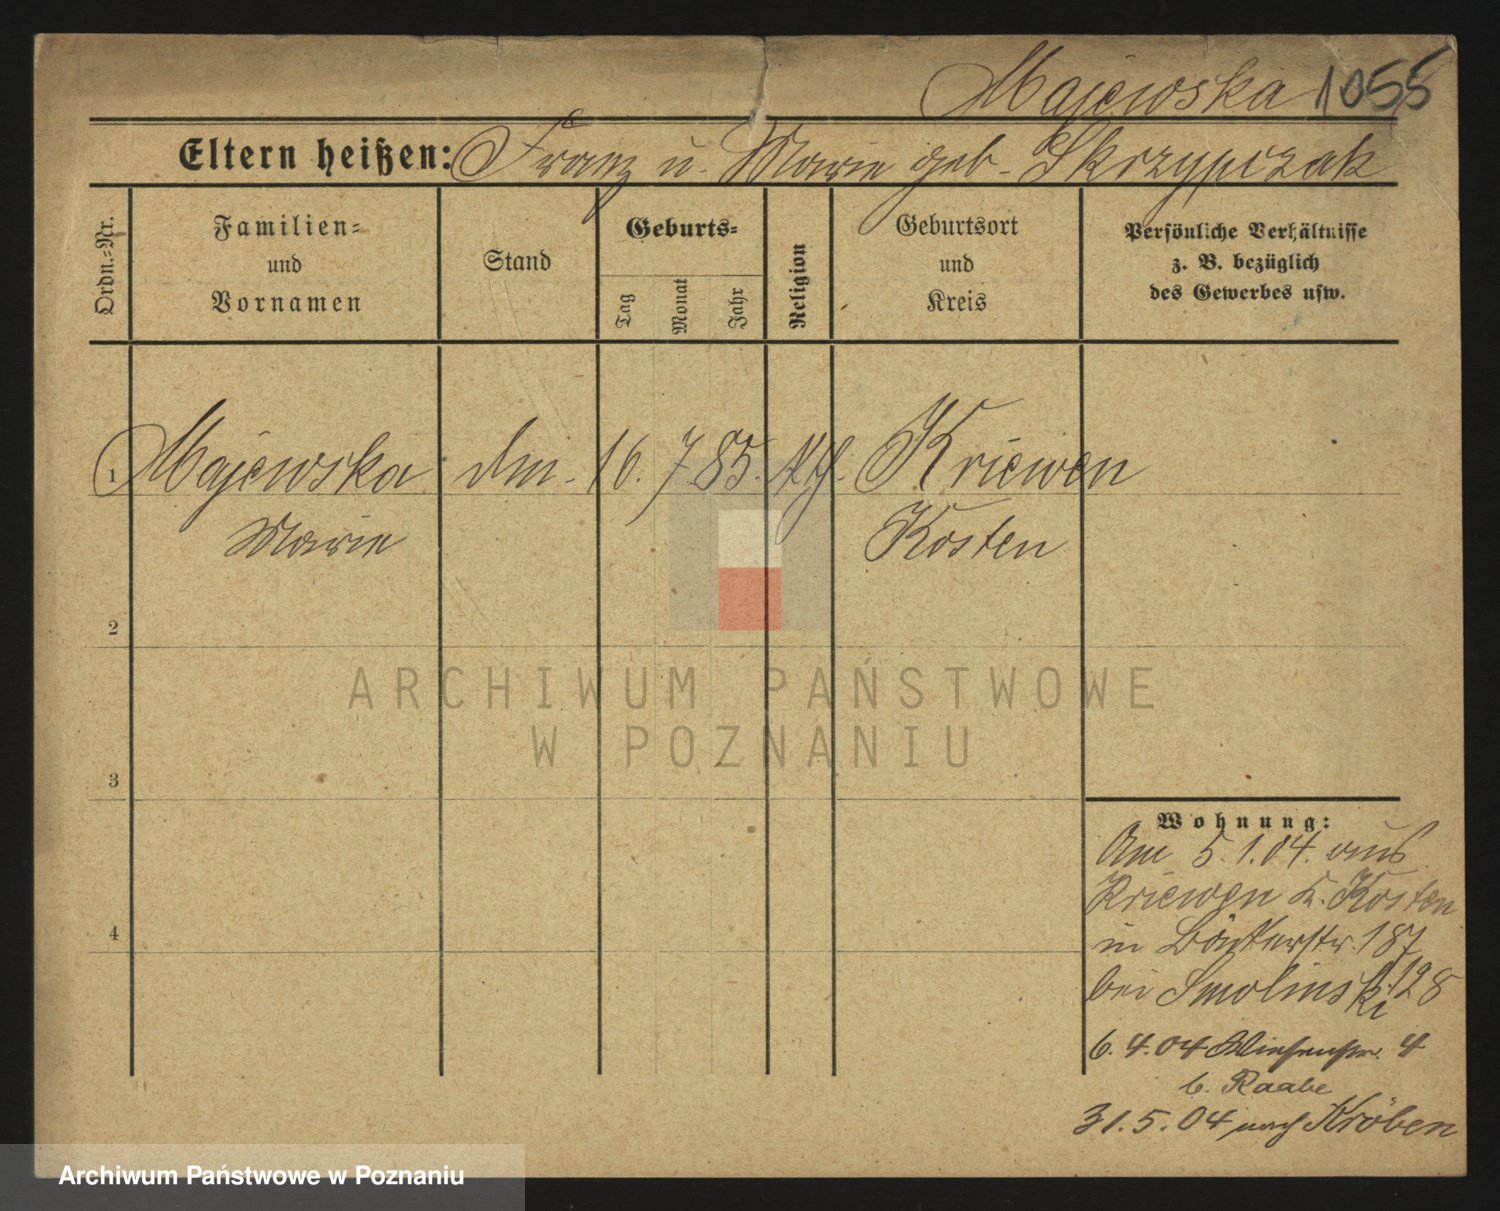 Majewska 1055
Eltern heißen: Franz u. Marie geb. Skrzypczak
Ordn.=Nr.
Familien=
und
Vornamen
Stand
Geburts=
Tag
Monat
Jahr
Religion
Geburtsort
und
Kreis
Persönliche Verhältnisse
z. B. bezüglich
des Gewerbes usw.
1 Majewska 16. 7. 85. Kth. Kriewen
Marie Kosten
2
3
4
Wohnung:
Am 5.1.04. aus
Kriewen K. Kosten
in 187
bei Smolinski 128
6. 4. 04 Wiesenstr. 4
b. Raabe
31. 5. 04 nach Kröben
ARCHIWUM PAŃSTWOWE
W POZNANIU
Archiwum Państwowe w Poznaniu